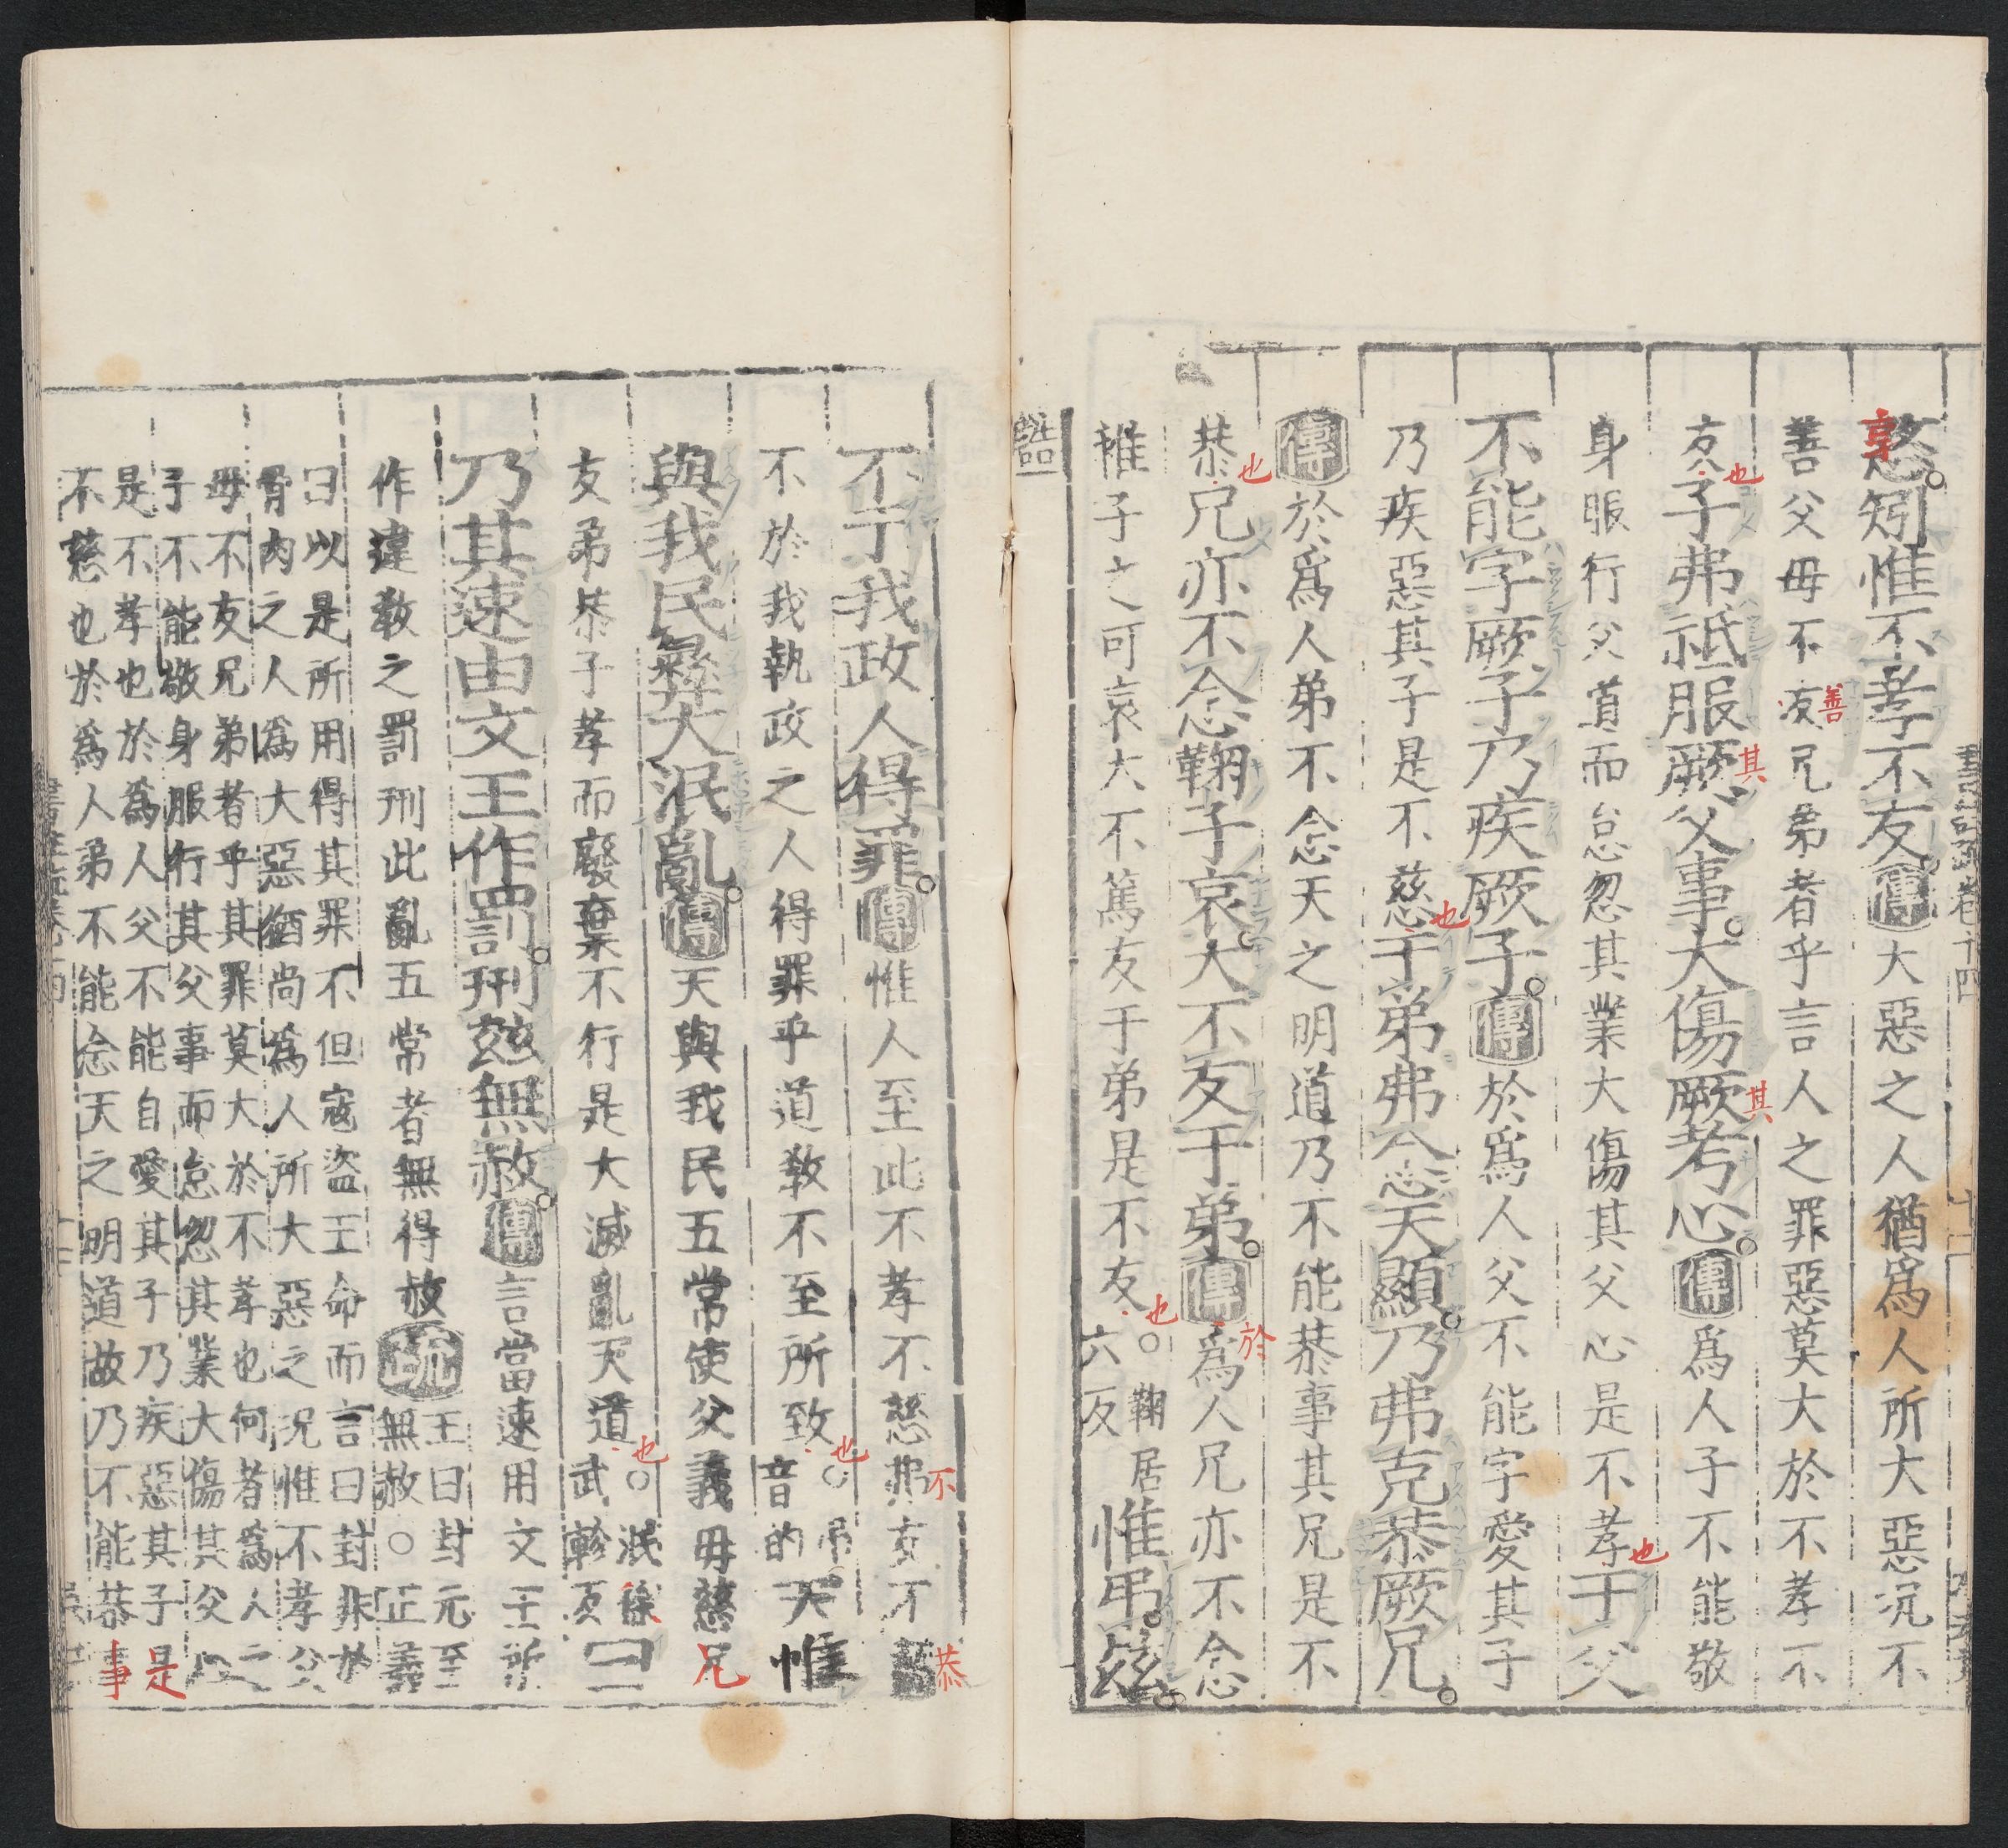 憝矧惟不孝不友傳大惡之人猶爲人所大惡況不
善父母不友兄弟者乎言人之罪惡莫大於不孝不
友子弗祗服厥父事大傷厥考心傳爲人子不能敬
身服行父道而怠忽其業大傷其父心是不孝于父
不能字厥子乃疾厥子傳於爲人父不能字愛其子
乃疾惡其子是不慈于弟弗念天顯乃弗克恭厥兄
傳於爲人弟不念天之明道乃不能恭事其兄是不
恭兄亦不念鞠子哀大不友于弟傳爲人兄亦不念
稚子之可哀大不篤友于弟是不友○鞠居六反惟弔茲
不于我政人得罪傳惟人至此不孝不慈弗友不
不於我執政之人得罪乎道教不至所致○弔音的天惟
與我民彝大泯亂傳天與我民五常使父義母慈兄
友弟恭子孝而廢棄不行是大滅亂天道○泯徐武軫反曰
乃其速由文王作罰刑茲無赦傳言當速用文王所
作違教之罰刑此亂五常者無得赦疏王曰封元至無赦○正義
曰以是所用得其罪不但寇盜王命而言曰封非於
骨肉之人爲大惡猶尚爲人所大惡之況惟不孝父
母不友兄弟者乎其罪莫大於不孝也何者爲人之
子不能敬身服行其父事而怠忽其業大傷其父心
是不孝也於爲人父不能自愛其子乃疾惡其子是
不慈也於爲人弟不能念天之明道故乃不能恭事
書註疏卷十四
誥
也
善
其
其
也
也
也
於
也
不
恭
也